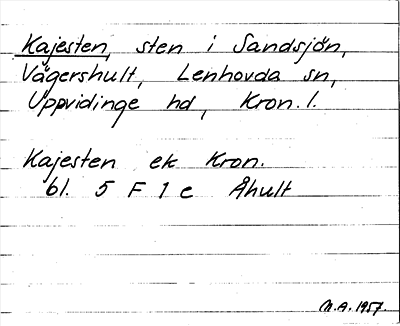 Kajesten, sten i Sandsjön,
Vägershult, Lenhovda sn,
Uppvidinge hd, Kron. l.
Kajesten ek Kron.
bl. 5 F 1 e Åhult
M.A. 1957.